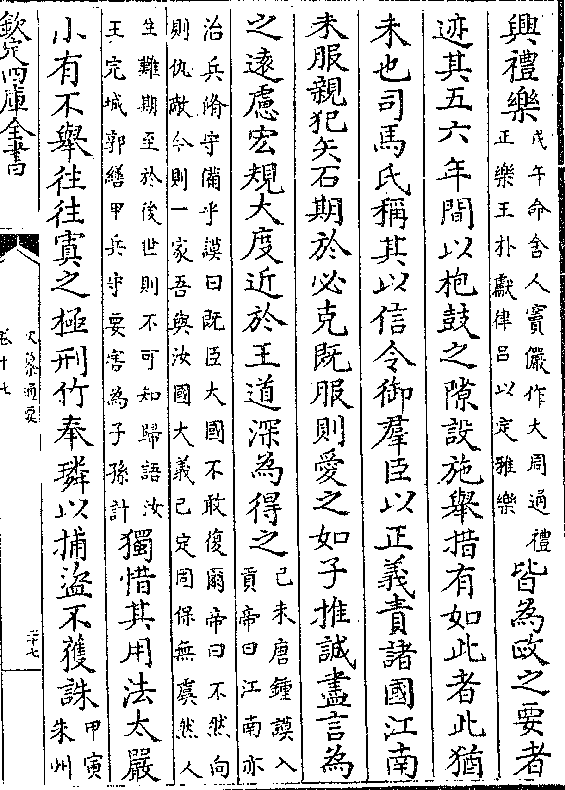 興禮樂
戊午命舍人竇儼作大周通禮
正樂王朴獻律呂以定雅樂
皆為政之要者
迹其五六年間以枹鼓之隙設施舉措有如此者此猶
未也司馬氏稱其以信令御羣臣以正義責諸國江南
未服親犯矢石期於必克既服則愛之如子推誠盡言為
之遠慮宏規大度近於王道深為得之
己未唐鍾謨入
貢帝曰江南亦
治兵脩守備乎謨曰既臣大國不敢復爾帝曰不然向
則仇敵今則一家吾與汝國大義已定固保無虞然人
生難期至於後世則不可知歸語汝
王完城郭繕甲兵守要害為子孫計
獨惜其用法太嚴
小有不舉往往寘之極刑竹奉璘以捕盜不獲誅
甲寅
朱州
欽定四庫全書
史纂通要
卷十七